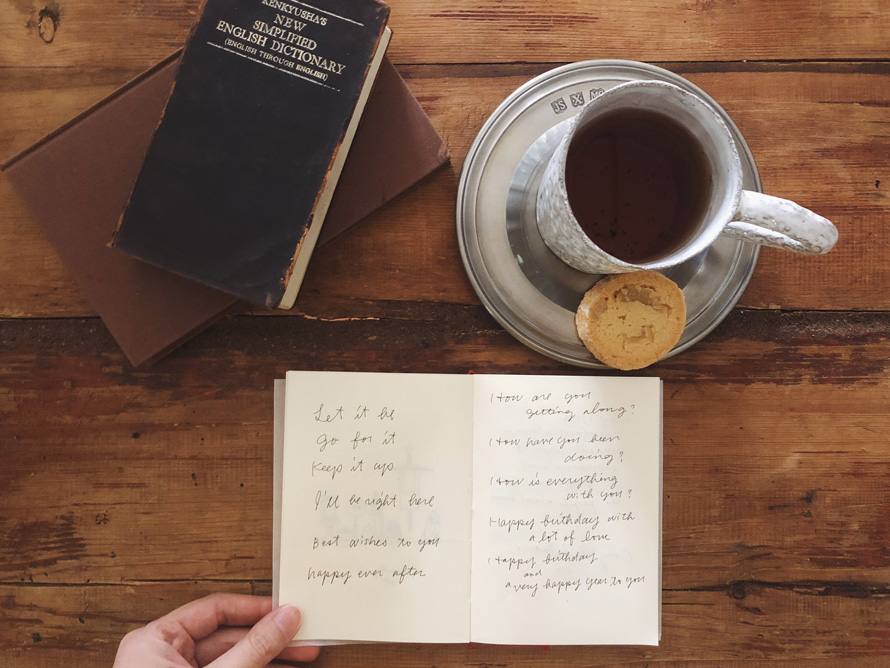 KENKYUSHA'S
NEW
SIMPLIFIED
ENGLISH DICTIONARY
(ENGLISH THROUGH ENGLISH)
Let it be
go for it
keep it up
I'll be right here
Best wishes to you
happy ever after
How are you
getting along?
How have you been
doing?
How is everything
with you?
Happy birthday with
a lot of love
Happy birthday
and
a very happy year to you